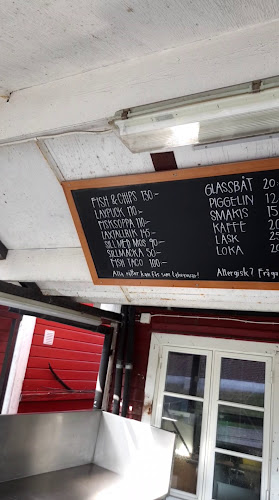 FISH & CHIPS 130:-
LAXPUCK 110:-
FISKSOPPA 110:-
LAXTALLRIK 145:-
SILL MED MOS 90:-
SILLMACKA 50:-
FISH TACO 100:-
Alla rätter kan fås som takeaway!
GLASSBÅT 20
PIGGELIN 12
SMAKIS 15
KAFFE 20
LÄSK 25
LOKA 2
Allergisk? Fråga